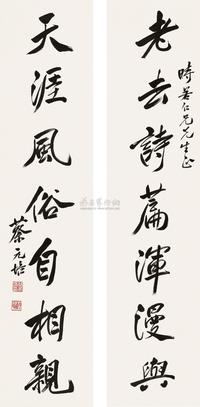 老去詩篇渾漫與
時若仁兄先生正
天涯風俗自相親
蔡元培